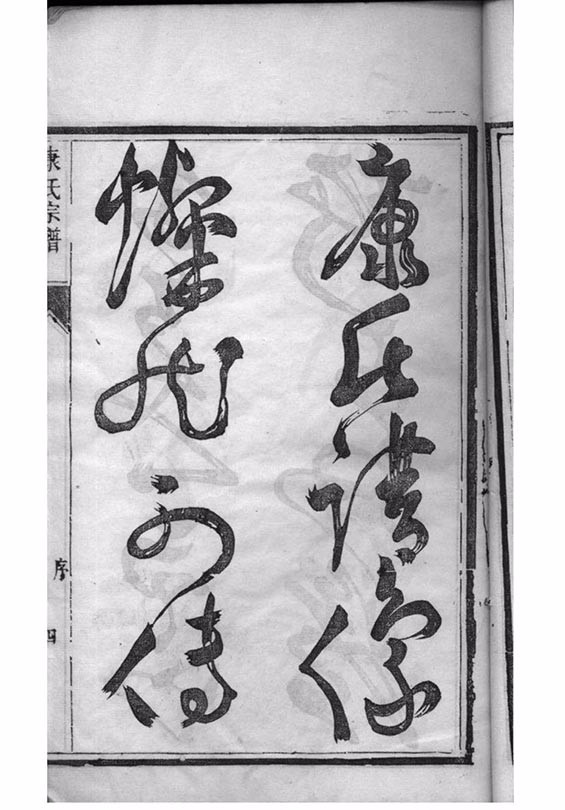 康氏譜像
燦然可傳
康氏宗譜
序
四